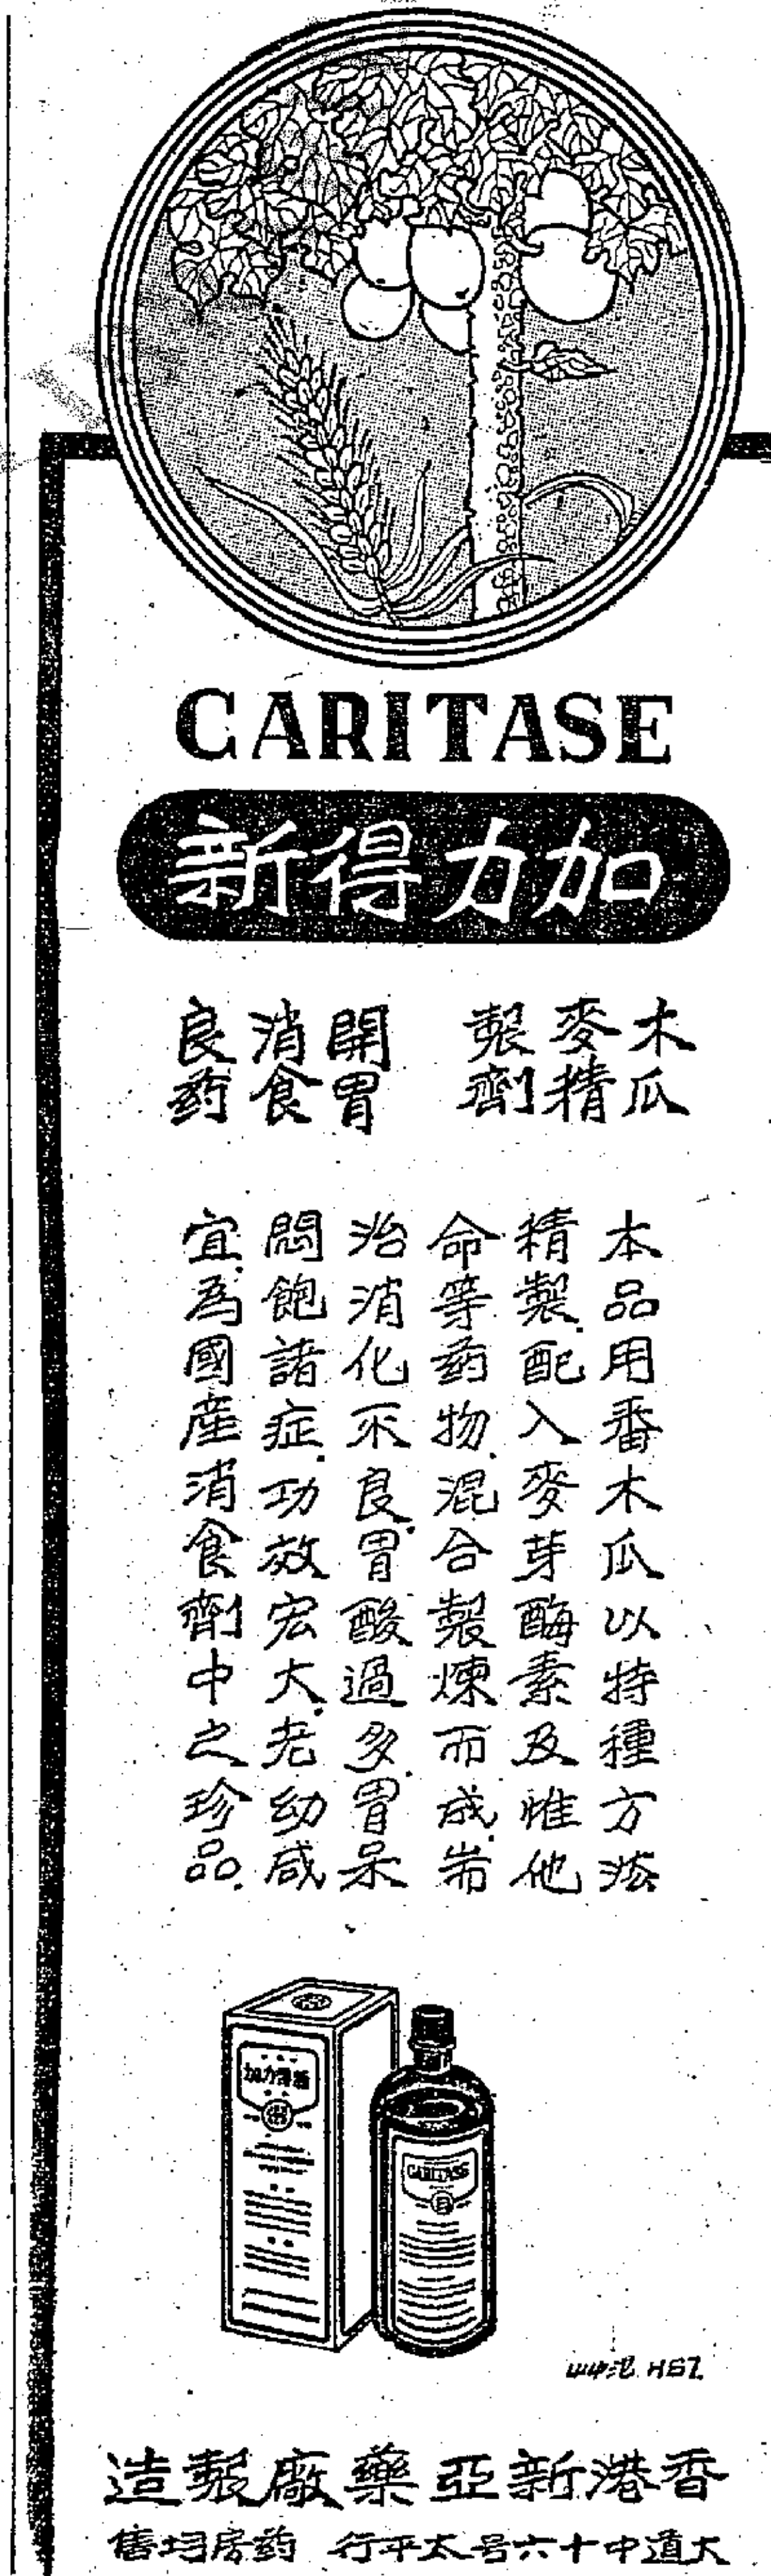 CARITASE
加力得新
木瓜
麥精
製劑
開胃
消食
良药
本品用番木瓜以特種方法
精製配入麥芽酶素及維他
命等药物混合製煉而成耑
治消化不良胃酸過多胃呆
悶飽諸症功效宏大老幼咸
宜為國產消食劑中之珍品
加力得新
CARITASE
HSZ
香港新亞藥廠製造
大道中十六号太平行 药房均售